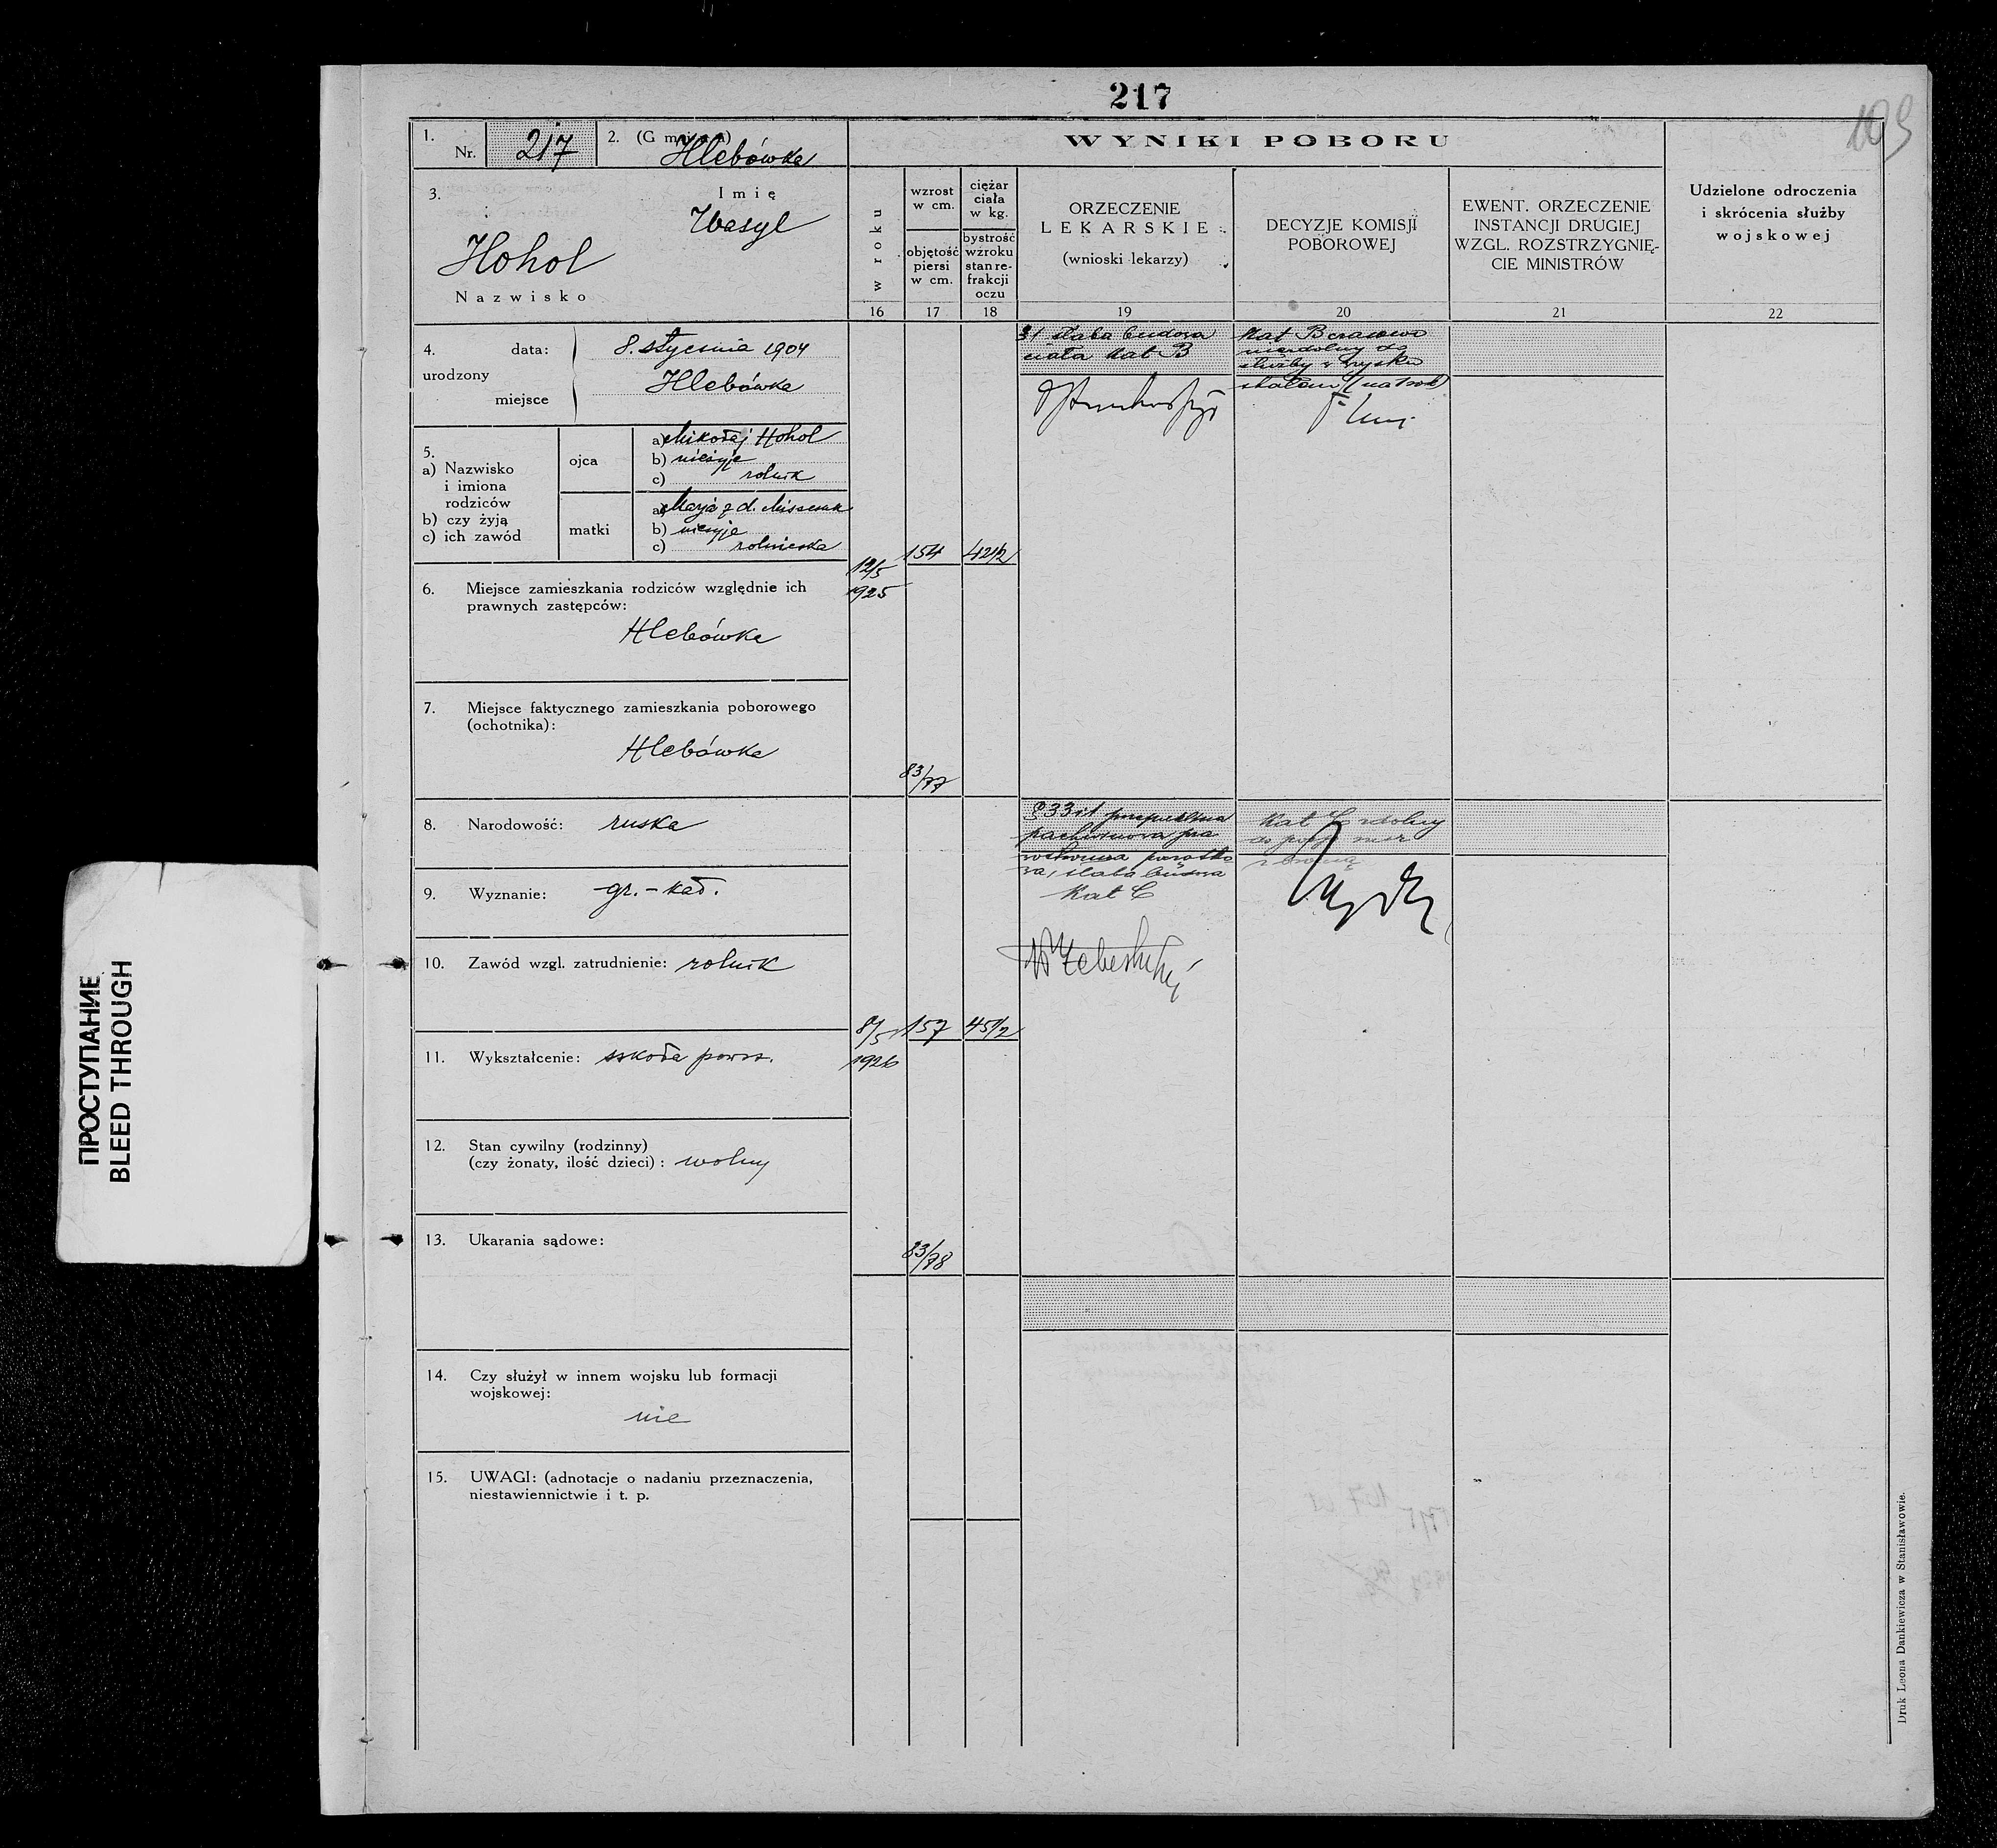 217
109
1.
Nr. 217
2. (Gmina) Hlebówka
WYNIKI POBORU
3.
Imię
Wasyl
Hohol
Nazwisko
w roku
wzrost
w cm.
objętość
piersi
w cm.
ciężar
ciała
w kg.
bystrość
wzroku
stan re-
frakcji
oczu
ORZECZENIE
LEKARSKIE
(wnioski lekarzy)
DECYZJE KOMISJI
POBOROWEJ
EWENT. ORZECZENIE
INSTANCJI DRUGIEJ
WZGL. ROZSTRZYGNIĘ-
CIE MINISTRÓW
Udzielone odroczenia
i skrócenia służby
wojskowej
16 17 18 19 20 21 22
4. data: 8. stycznia 1904
urodzony
Hlebówka
miejsce
5.
a) Nazwisko
i imiona
rodziców
b) czy żyją
c) ich zawód
ojca
a) Mikołaj Hohol
b) nieżyje
c) rolnik
matki
a) Marja z d.
b) nieżyje
c) rolniczka
6. Miejsce zamieszkania rodziców względnie ich
prawnych zastępców:
Hlebówka
7. Miejsce faktycznego zamieszkania poborowego
(ochotnika):
Hlebówka
8. Narodowość: ruska
9. Wyznanie: gr.-kat.
10. Zawód wzgl. zatrudnienie: rolnik
11. Wykształcenie: szkoła powsz.
12. Stan cywilny (rodzinny)
(czy żonaty, ilość dzieci): wolny
13. Ukarania sądowe:
14. Czy służył w innem wojsku lub formacji
wojskowej:
nie
15. UWAGI: (adnotacje o nadaniu przeznaczenia,
niestawiennictwie i t. p.
12/5
1925
154
42 1/2
83/77
słaba budowa
ciała Kat B
Kat B czasowo
niezdolny do
służby w wojsku
stałem (na 1 rok)
8/5
1926
157
45 1/2
83/78
§ 33
pachwinowa pra
słaba budowa
Kat C
Kat C zdolny
z bronią
Druk Leona Dankiewicza w Stanisławowie.
ПРОСТУПАНИЕ
BLEED THROUGH